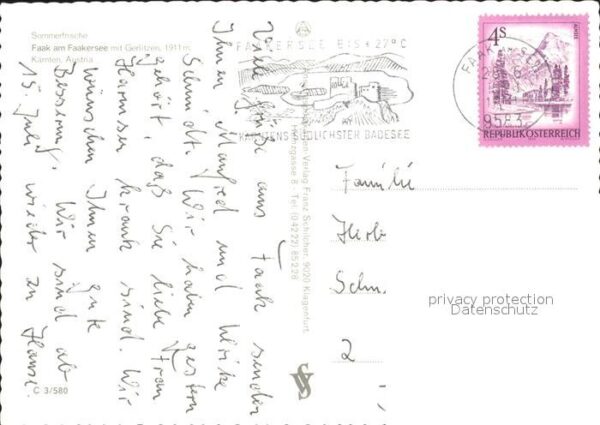 Sommerfrische
Faak am Faakersee mit Gerlitzen, 1911 m
Kärnten, Austria
Viele Grüße aus Faak senden
Ihnen Manfred und Ulrike
Schmidt. Wir haben gestern
gehört, daß Sie liebe Frau
krank sind. Wir
wünschen Ihnen gute
Besserung. Wir sind ab
15. Juli wieder zu Hause.
C 3/580
FAAKERSEE BIS +27°C
KÄRNTENS SÜDLICHSTER BADESEE
Verlag Franz Schilcher, 9020 Klagenfurt,
gasse 8 - Tel. (04222) 85228
FAAK AM SEE
9583
4s
REPUBLIK ÖSTERREICH
Familie
Herb
Schm.
2
privacy protection
Datenschutz